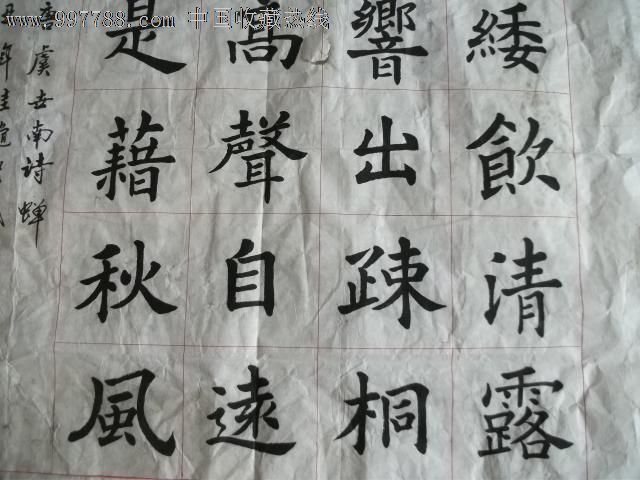 www.997788.com 中国收藏热线
緌飲清露
響出疎桐
高聲自遠
是藉秋風
虞世南诗蝉
丑年桂